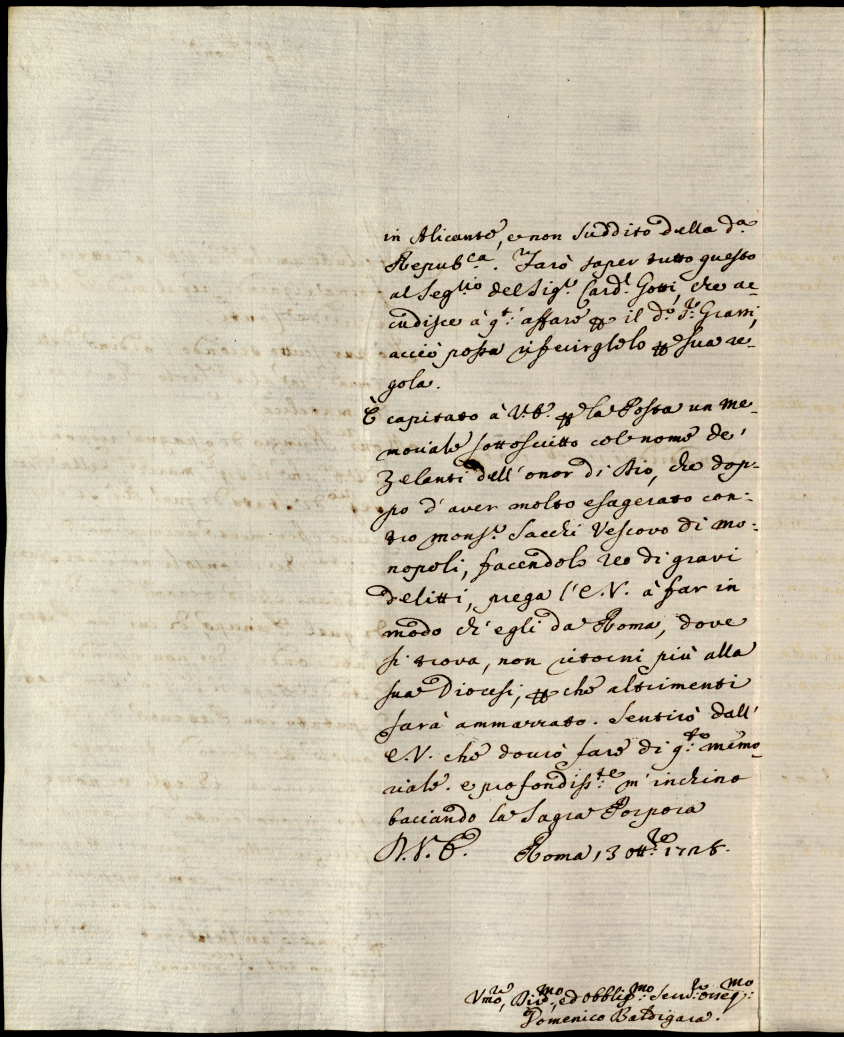 in Alicante, e non suddito della d.a
Repub.ca. Farò saper tutto questo
al Seg.rio del Sig.r Card.l Gotti, che ac-
cudisce à q.t' affare p il d.o P. Grassi,
acciò possa riferirglielo p sua re-
gola.
È capitato à V.E. p la Posta un me-
moriale sottoscritto col nome de'
Zelanti dell'onor di Dio, che dop-
po d'aver molto esagerato con-
tro mons.r Sacchi Vescovo di mo-
nopoli, facendolo reo di gravi
delitti, prega l'E.V. à far in
modo ch'egli da Roma, dove
si trova, non ritorni più alla
sua Diocesi, p che altrimenti
sarà ammazzato. Sentirò dall'
E.V. che dovrò fare di q.to memo-
riale. e profondiss.te m'inchino
baciando la Sagra Porpora
D.V.E. Roma, 13 ott.re 172
Vmo, Divmo, ed obbligmo Serv.re osseq.mo
Domenico Baldigara.